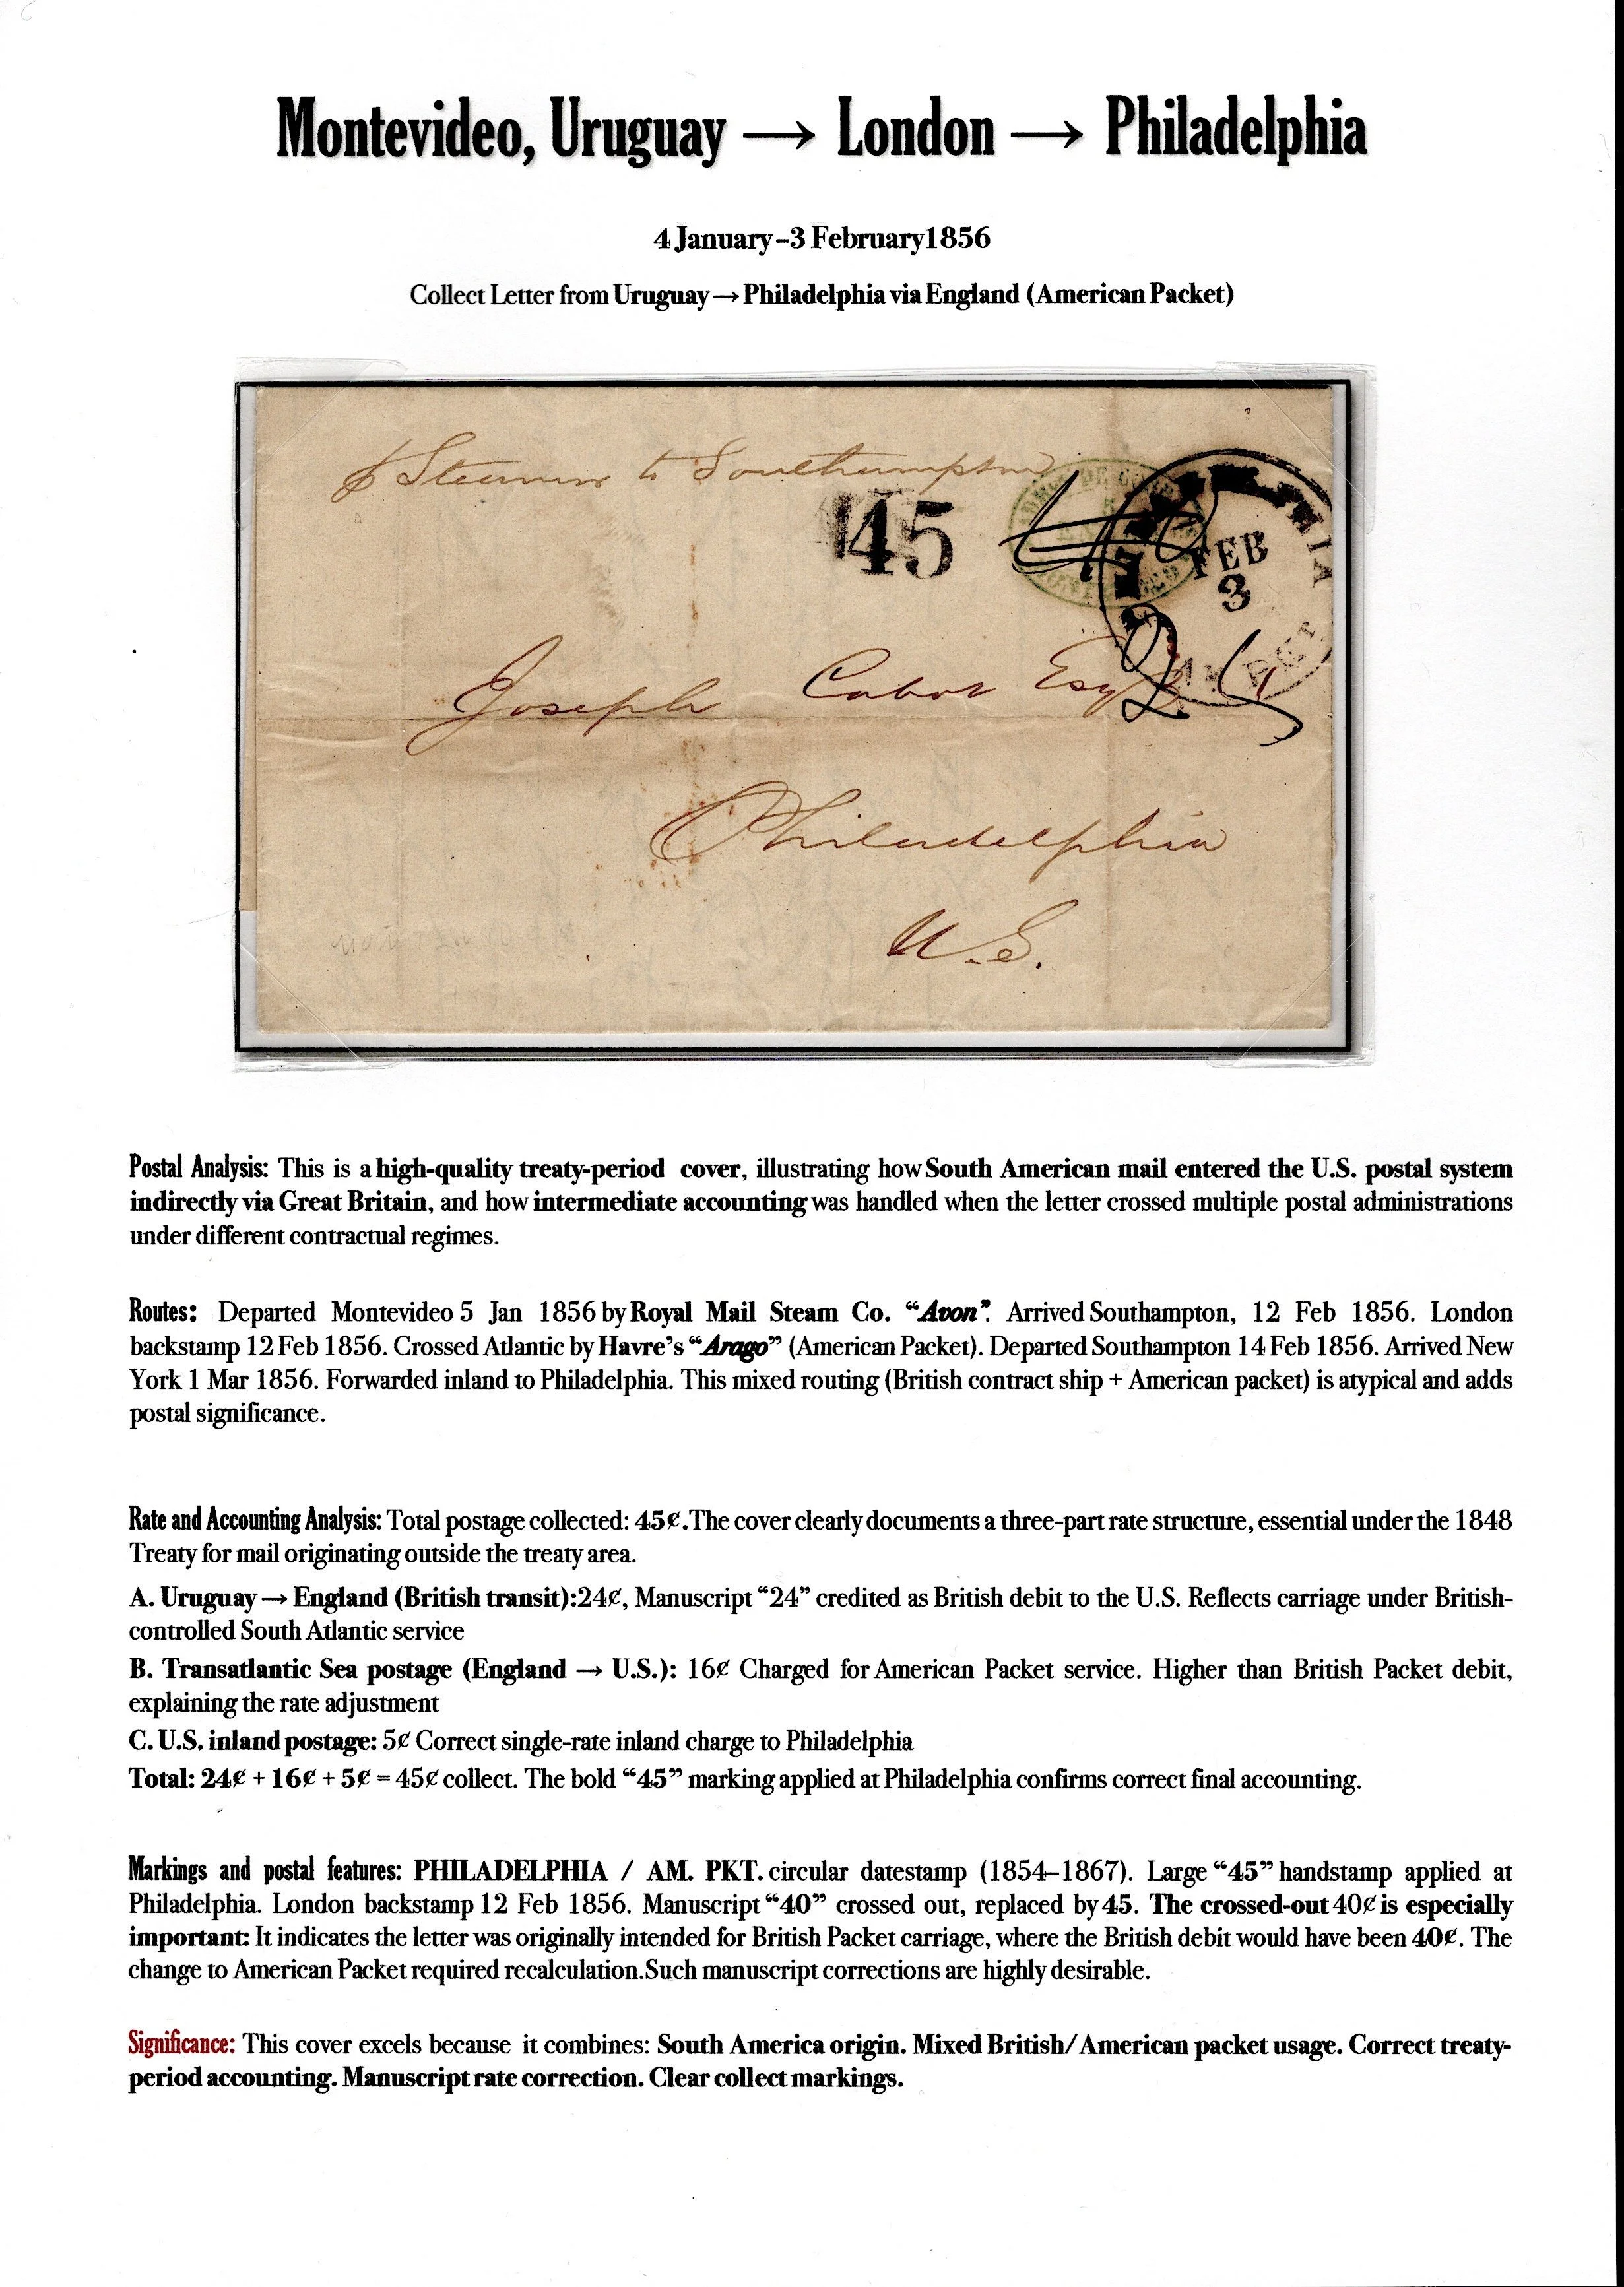 Montevideo, Uruguay → London → Philadelphia
4 January–3 February1856
Collect Letter from Uruguay → Philadelphia via England (American Packet)
⅌ Steamer to Southampton
45
40
FEB
3
24
Joseph Cabot Esqr
Philadelphia
U.S.
Postal Analysis: This is a high-quality treaty-period cover, illustrating how South American mail entered the U.S. postal system
indirectly via Great Britain, and how intermediate accounting was handled when the letter crossed multiple postal administrations
under different contractual regimes.
Routes: Departed Montevideo 5 Jan 1856 by Royal Mail Steam Co. “Avon”. Arrived Southampton, 12 Feb 1856. London
backstamp 12 Feb 1856. Crossed Atlantic by Havre’s “Arago” (American Packet). Departed Southampton 14 Feb 1856. Arrived New
York 1 Mar 1856. Forwarded inland to Philadelphia. This mixed routing (British contract ship + American packet) is atypical and adds
postal significance.
Rate and Accounting Analysis: Total postage collected: 45¢.The cover clearly documents a three-part rate structure, essential under the 1848
Treaty for mail originating outside the treaty area.
A. Uruguay → England (British transit):24¢, Manuscript “24” credited as British debit to the U.S. Reflects carriage under British-
controlled South Atlantic service
B. Transatlantic Sea postage (England → U.S.): 16¢ Charged for American Packet service. Higher than British Packet debit,
explaining the rate adjustment
C. U.S. inland postage: 5¢ Correct single-rate inland charge to Philadelphia
Total: 24¢ + 16¢ + 5¢ = 45¢ collect. The bold “45” marking applied at Philadelphia confirms correct final accounting.
Markings and postal features: PHILADELPHIA / AM. PKT. circular datestamp (1854–1867). Large “45” handstamp applied at
Philadelphia. London backstamp 12 Feb 1856. Manuscript “40” crossed out, replaced by 45. The crossed-out 40¢ is especially
important: It indicates the letter was originally intended for British Packet carriage, where the British debit would have been 40¢. The
change to American Packet required recalculation.Such manuscript corrections are highly desirable.
Significance: This cover excels because it combines: South America origin. Mixed British/American packet usage. Correct treaty-
period accounting. Manuscript rate correction. Clear collect markings.